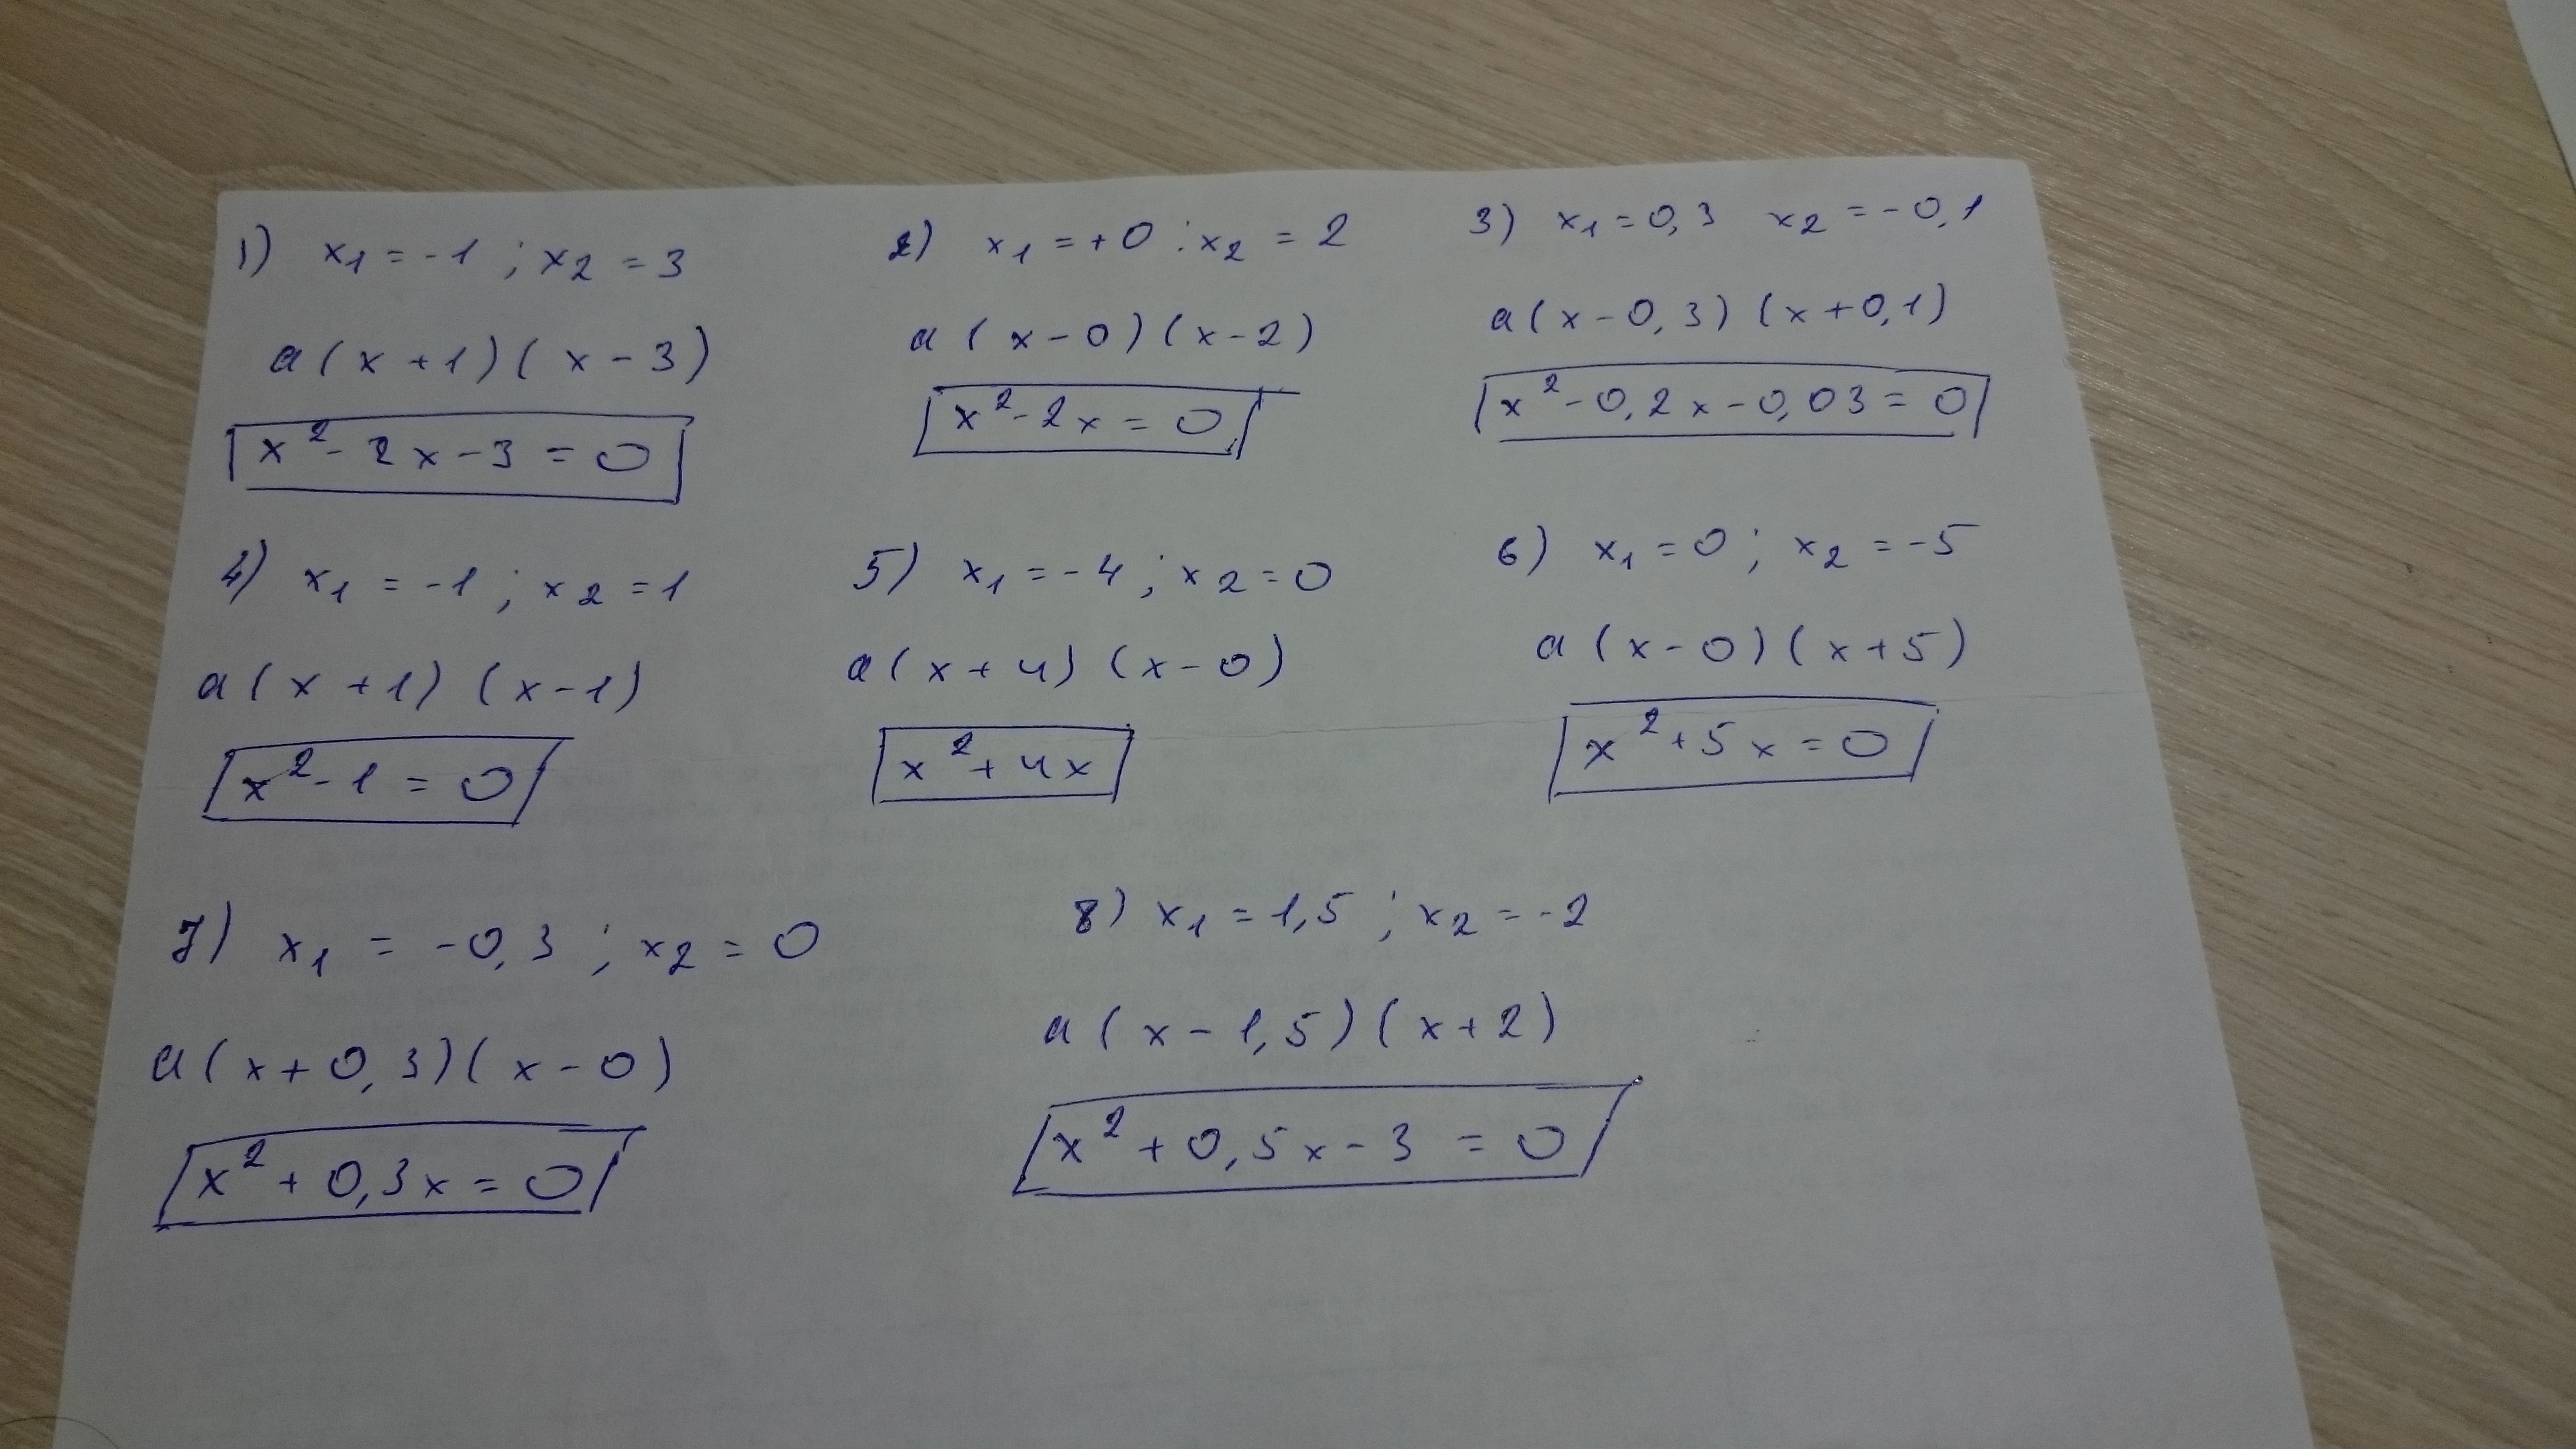 1) x₁ = -1 ; x₂ = 3
a(x+1)(x-3)
x²-2x-3=0
2) x₁ = +0 ; x₂ = 2
a(x-0)(x-2)
x²-2x=0
3) x₁=0,3 x₂=-0,1
a(x-0,3)(x+0,1)
x²-0,2x-0,03=0
4) x₁ = -1 ; x₂ = 1
a(x+1)(x-1)
x²-1=0
5) x₁ = -4 ; x₂ = 0
a(x+4)(x-0)
x²+4x
6) x₁ = 0 ; x₂ = -5
a(x-0)(x+5)
x²+5x=0
7) x₁ = -0,3 ; x₂ = 0
a(x+0,3)(x-0)
x²+0,3x=0
8) x₁ = 1,5 ; x₂ = -2
a(x-1,5)(x+2)
x²+0,5x-3=0